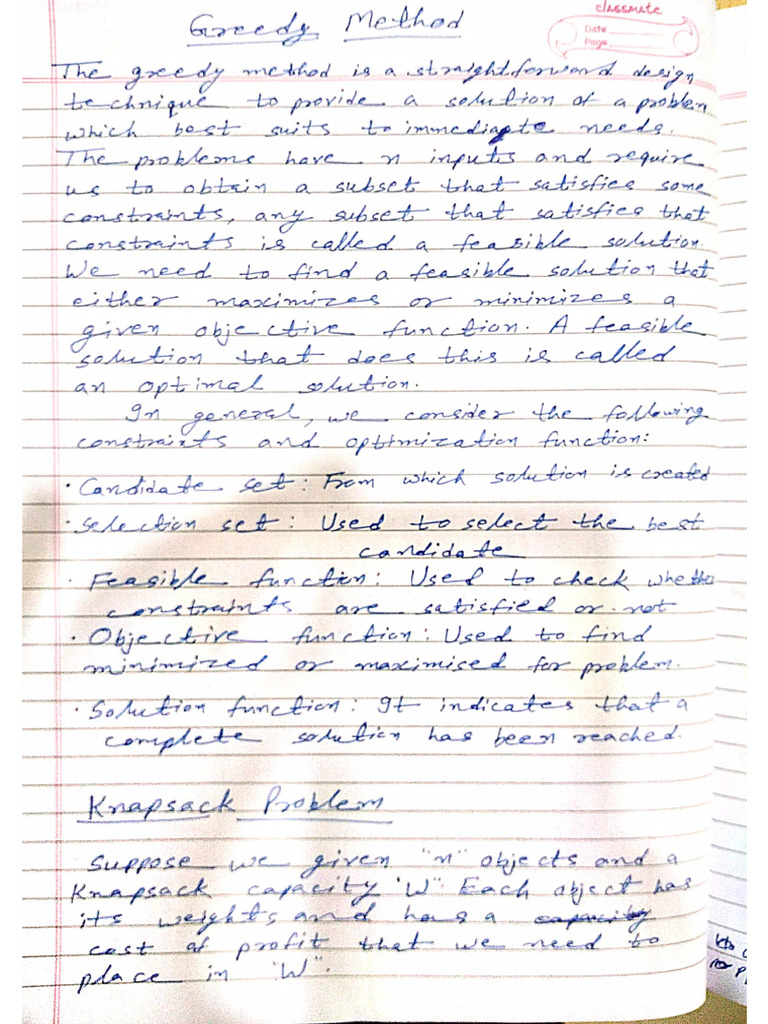 classmate
Date
Page
Greedy Method
The greedy method is a straightforward design
technique to provide a solution of a problem
which best suits to immediate needs.
The problems have n inputs and require
us to obtain a subset that satisfies some
constraints, any subset that satisfies that
constraints is called a feasible solution.
We need to find a feasible solution that
either maximizes or minimizes a
given objective function. A feasible
solution that does this is called
an optimal solution.
In general, we consider the following
constraints and optimization function:
· Candidate set: From which solution is created
· Selection set: Used to select the best
candidate
· Feasible function: Used to check whethe
constraints are satisfied or not
· Objective function: Used to find
minimized or maximised for problem.
· Solution function: It indicates that a
complete solution has been reached.
Knapsack Problem
Suppose we given "n" objects and a
Knapsack capacity 'W". Each object has
its weights and has a capacity
cost of profit that we need to
place in "W".